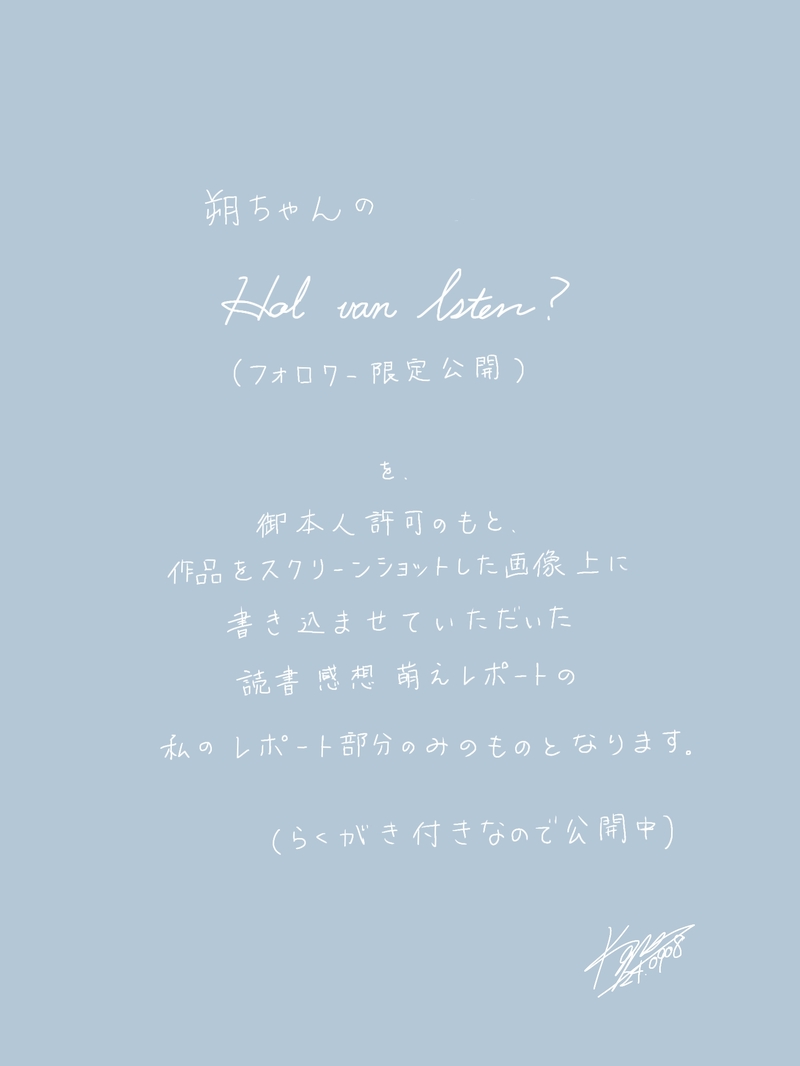 朔ちゃんの
Hol van Isten?
(フォロワー限定公開)
を、
御本人許可のもと、
作品をスクリーンショットした画像上に
書き込ませていただいた
読書感想萌えレポートの
私のレポート部分のみのものとなります。
(らくがき付きなので公開中)